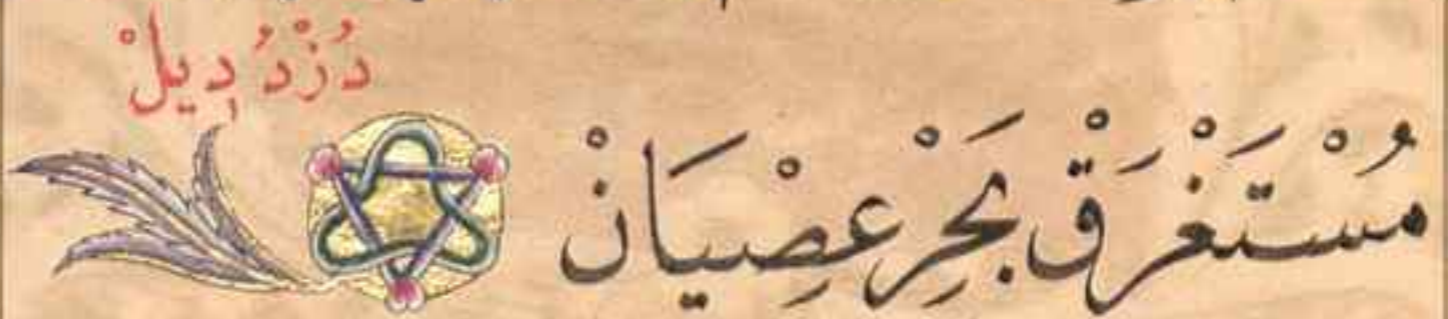 دُزْدُ دِيلْ
مُسْتَغْرَقْ بَحْرِ عِصْيَانْ